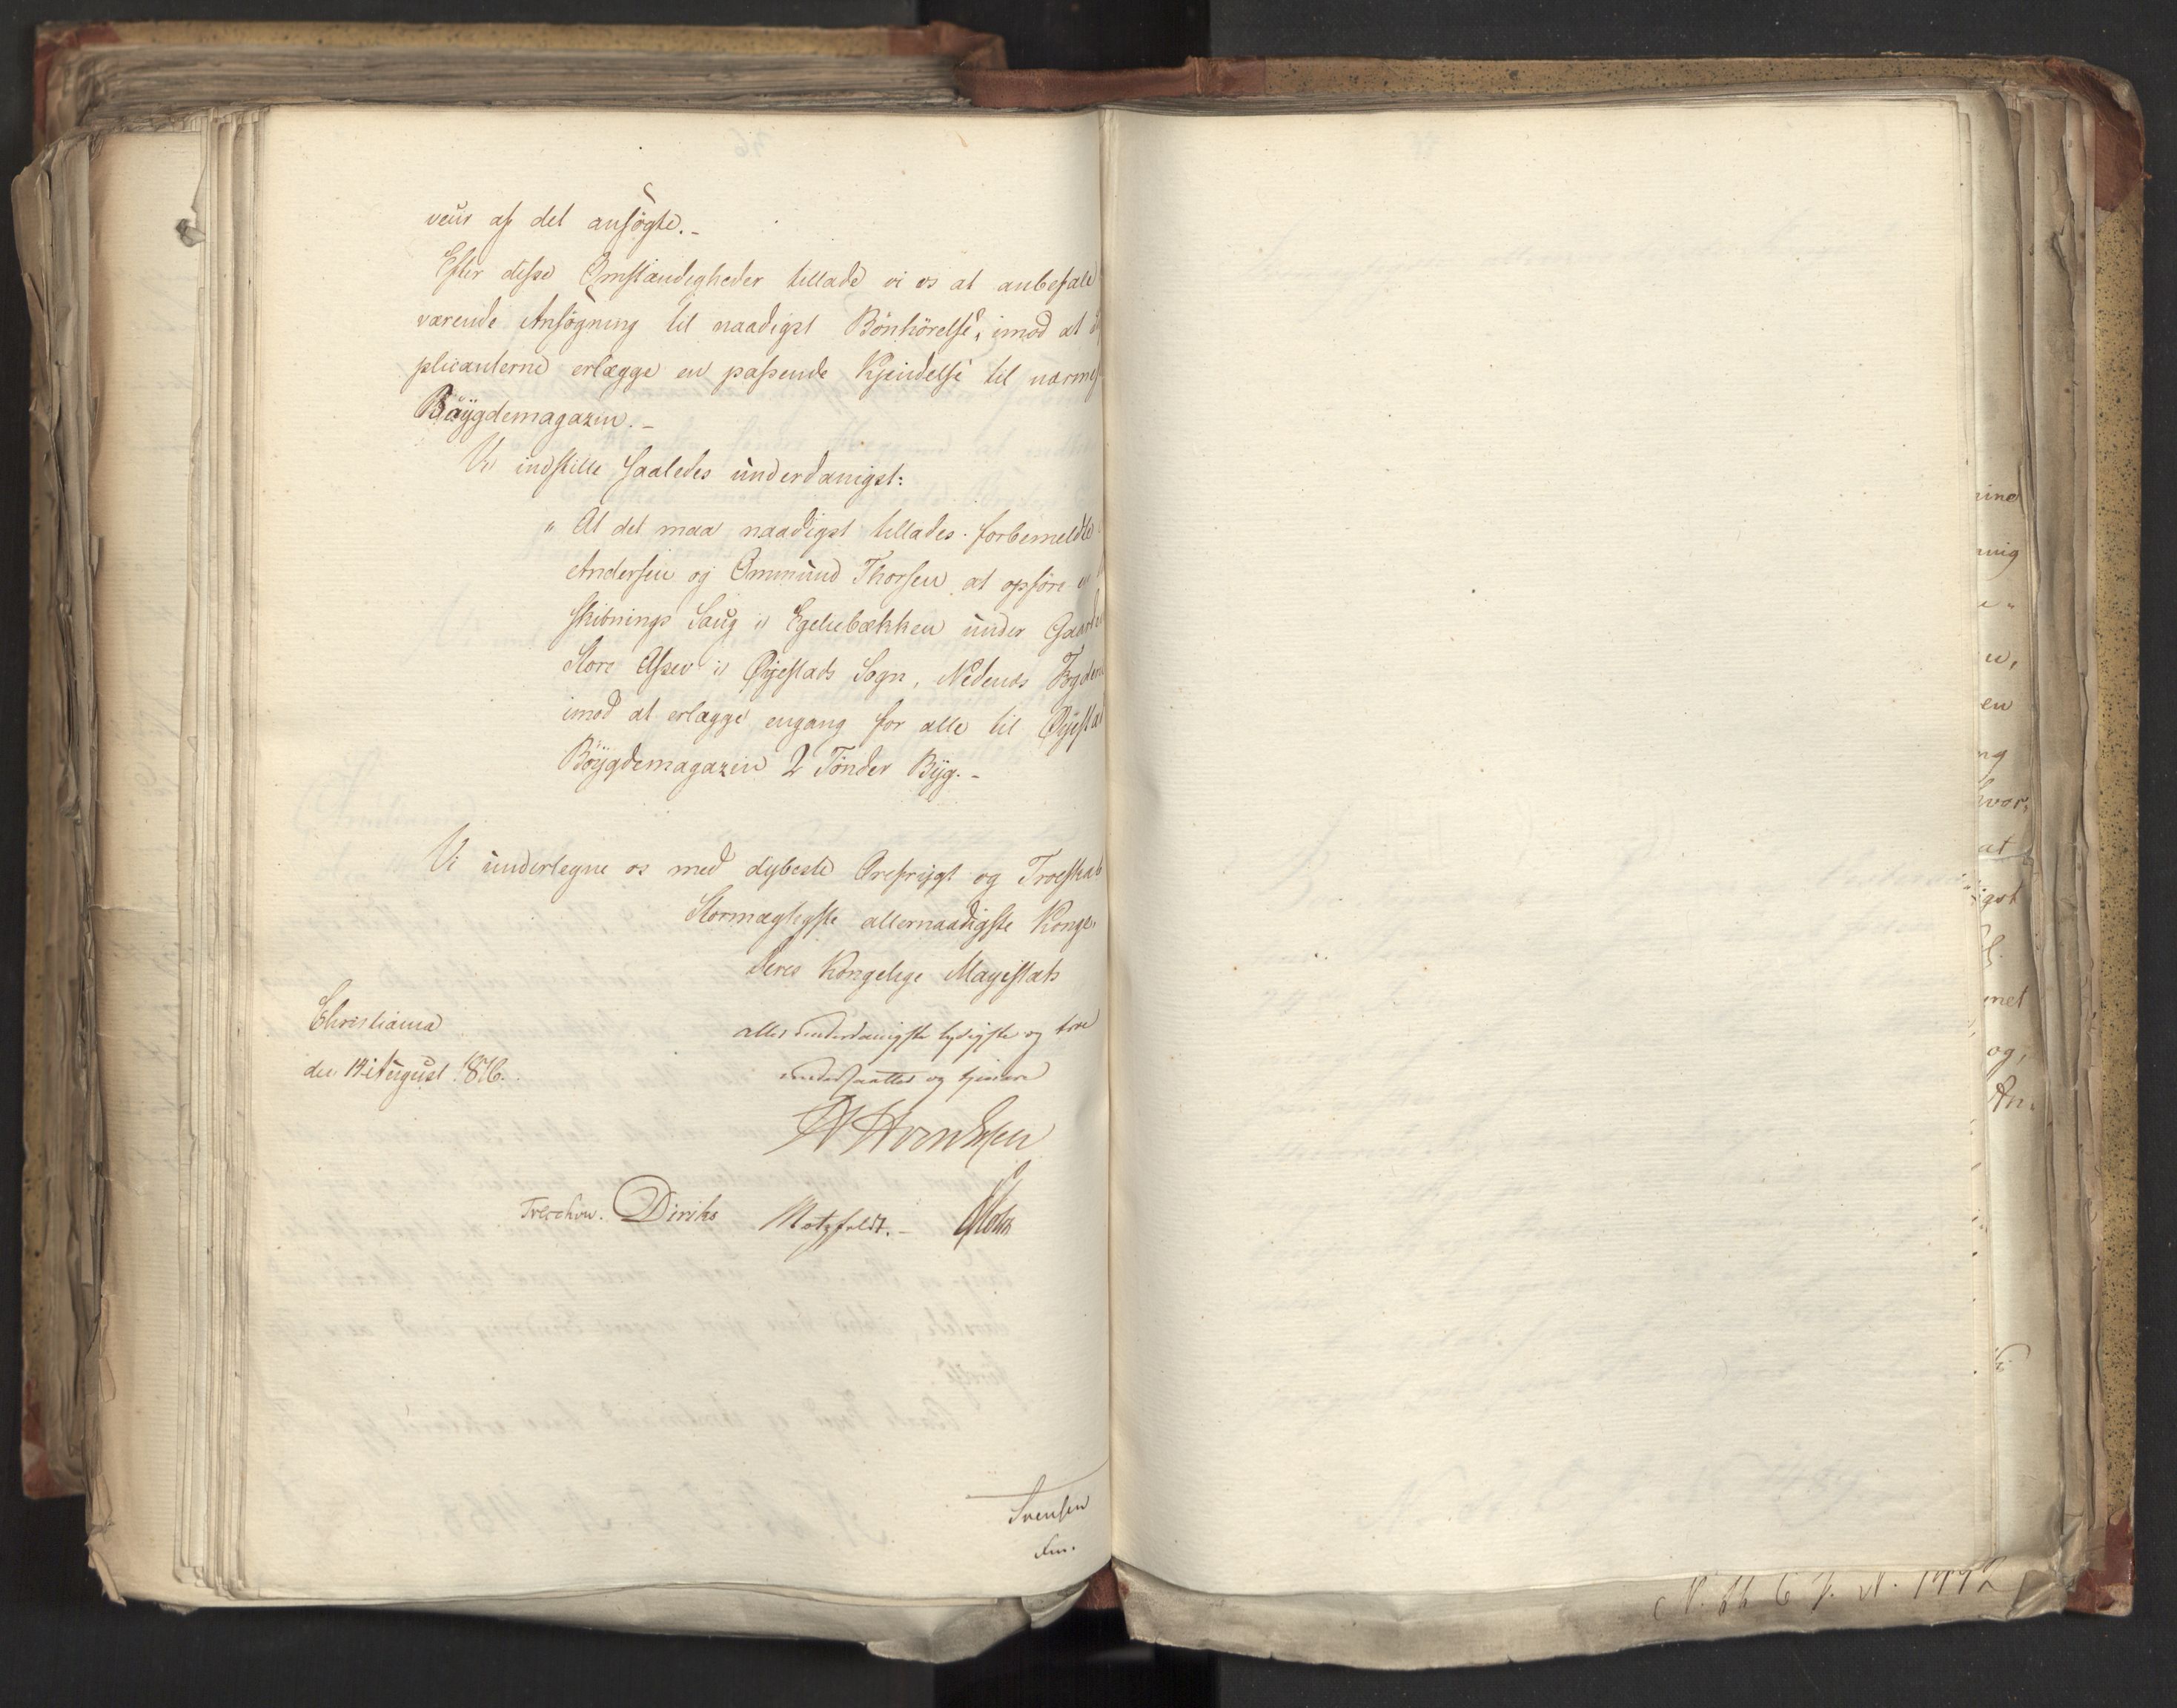 veur af det ansøgte.-
Efter disse Omstændigheder tillade vi os at anbefale
værende Ansøgning til naadigst Bönhörelse, imod at
plicanterne erlægge en passende Kjendelse til nærmes
Böygdemagazin.-
Vi indstille saaledes underdanigst:
" At det maa naadigst tillades forbemeldte
Andersen og Ommund Thorsen at opföre
skibnings Saug i Egeliebækken under Gaarde
Store Assev i Øyestads Sogn, Nedenæs Fogderie
imod at erlægge engang for alle til Øyestad
Böygdemagazin 2 Tönder Byg.-
Vi undertegne os med dybeste Ærefrygt og Troeskab
Stormægtigste allernaadigste Konge,
Deres Kongelige Mayestæts
Christiania
den 14 August 1816.
allerunderdanigste lydigste og troe
undersaatter og tjenere
Treschow. Diriks Motzfeldt.-
Svensen
Fm.
ning
en
ng
hvor,
at
igst
met
og,
An-